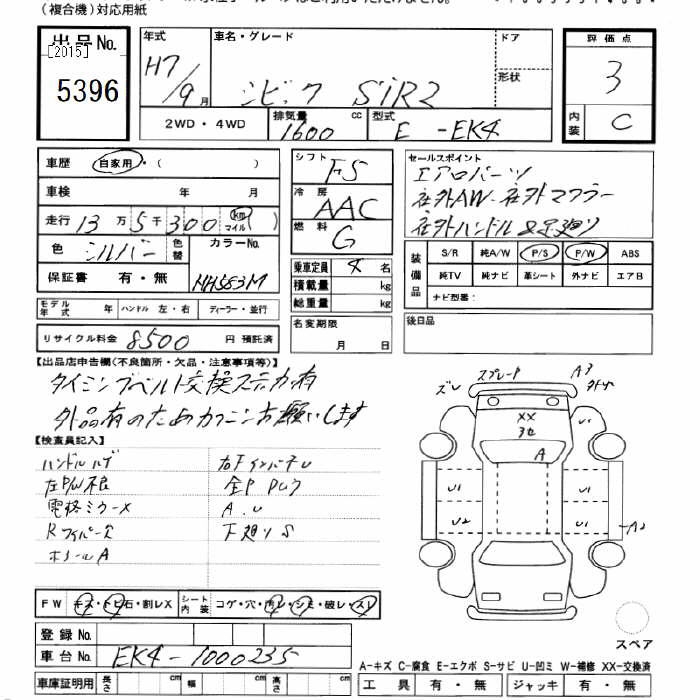 (複合機)対応用紙
出品No. 年式 車名・グレード ドア 評価点
[2015] H7 シビック SiR2 形状 3
5396 /9月
2WD・4WD 排気量 1600 cc 型式 E-EK4 内装 C
車歴 自家用・( ) シフト F5 セールスポイント
車検 年 月 冷房 AAC エアロパーツ
走行 13万5千300 km マイル ( ) 燃料 G 社外AW・社外マフラー
色 シルバー 色替 カラーNo. 社外ハンドル&足廻り
保証書 有・無 NH583M 乗車定員 4名
積載量 kg
総重量 kg
装備品 S/R 純A/W P/S P/W ABS
純TV 純ナビ 革シート 外ナビ エアB
ナビ型番:
モデル年式 年 ハンドル 左・右 ディーラー・並行
リサイクル料金 8500 円 預託済
名変期限 月 日
後日品
【出品店申告欄(不良箇所・欠品・注意事項等)】
タイミングベルト交換ステッカー有
外品有のためカクニンお願いします
【検査員記入】
ハンドルハゲ
左P/W不良
電格ミラーX
ホイールA
A.U
下廻りS
スレ スプレー A3
XX
3セ
A
U1 U1
U1 U1
U2 U1 A2
FW キズ・トビ石・割レX シート内装 コゲ・穴・汚レ・シミ・破レ・スレ
登録No.
車台No. EK4-1000235
車庫証明用 長さ cm 幅 cm 高さ cm
スペア
A-キズ C-腐食 E-エクボ S-サビ U-凹ミ W-補修 XX-交換済
工具 有・無 ジャッキ 有・無